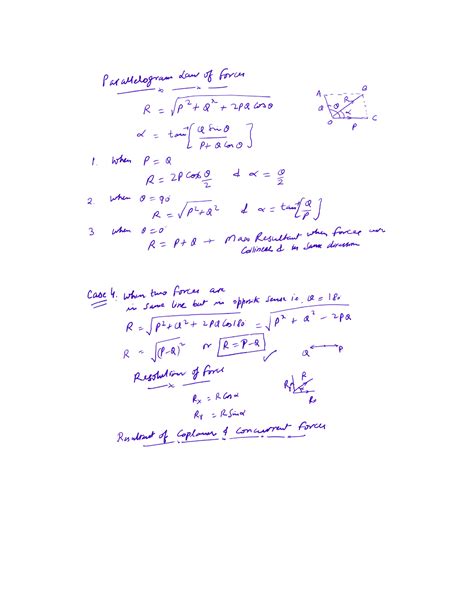 Parallelogram Law of forces
R = √P² + Q² + 2PQ cosθ
α = tan⁻¹[Q Sinθ / P + Q Cosθ]
A Q R Q θ α O P C
1. When P = Q
R = 2P Cos θ/2 & α = θ/2
2. when θ = 90°
R = √P² + Q² & α = tan⁻¹[Q/P]
3 when θ = 0°
R = P + Q → Max Resultant when forces are
Collinear & in same direction
Case 4. When two forces are
in same line but in opposite sense i.e. θ = 180
R = √P² + Q² + 2PQ Cos180 = √P² + Q² − 2PQ
R = √(P−Q)² or R = P−Q
Q P
Resolution of force
Rx = R Cosα
Ry = R Sinα
Ry R Rx
Resultant of Coplanar & Concurrent Forces